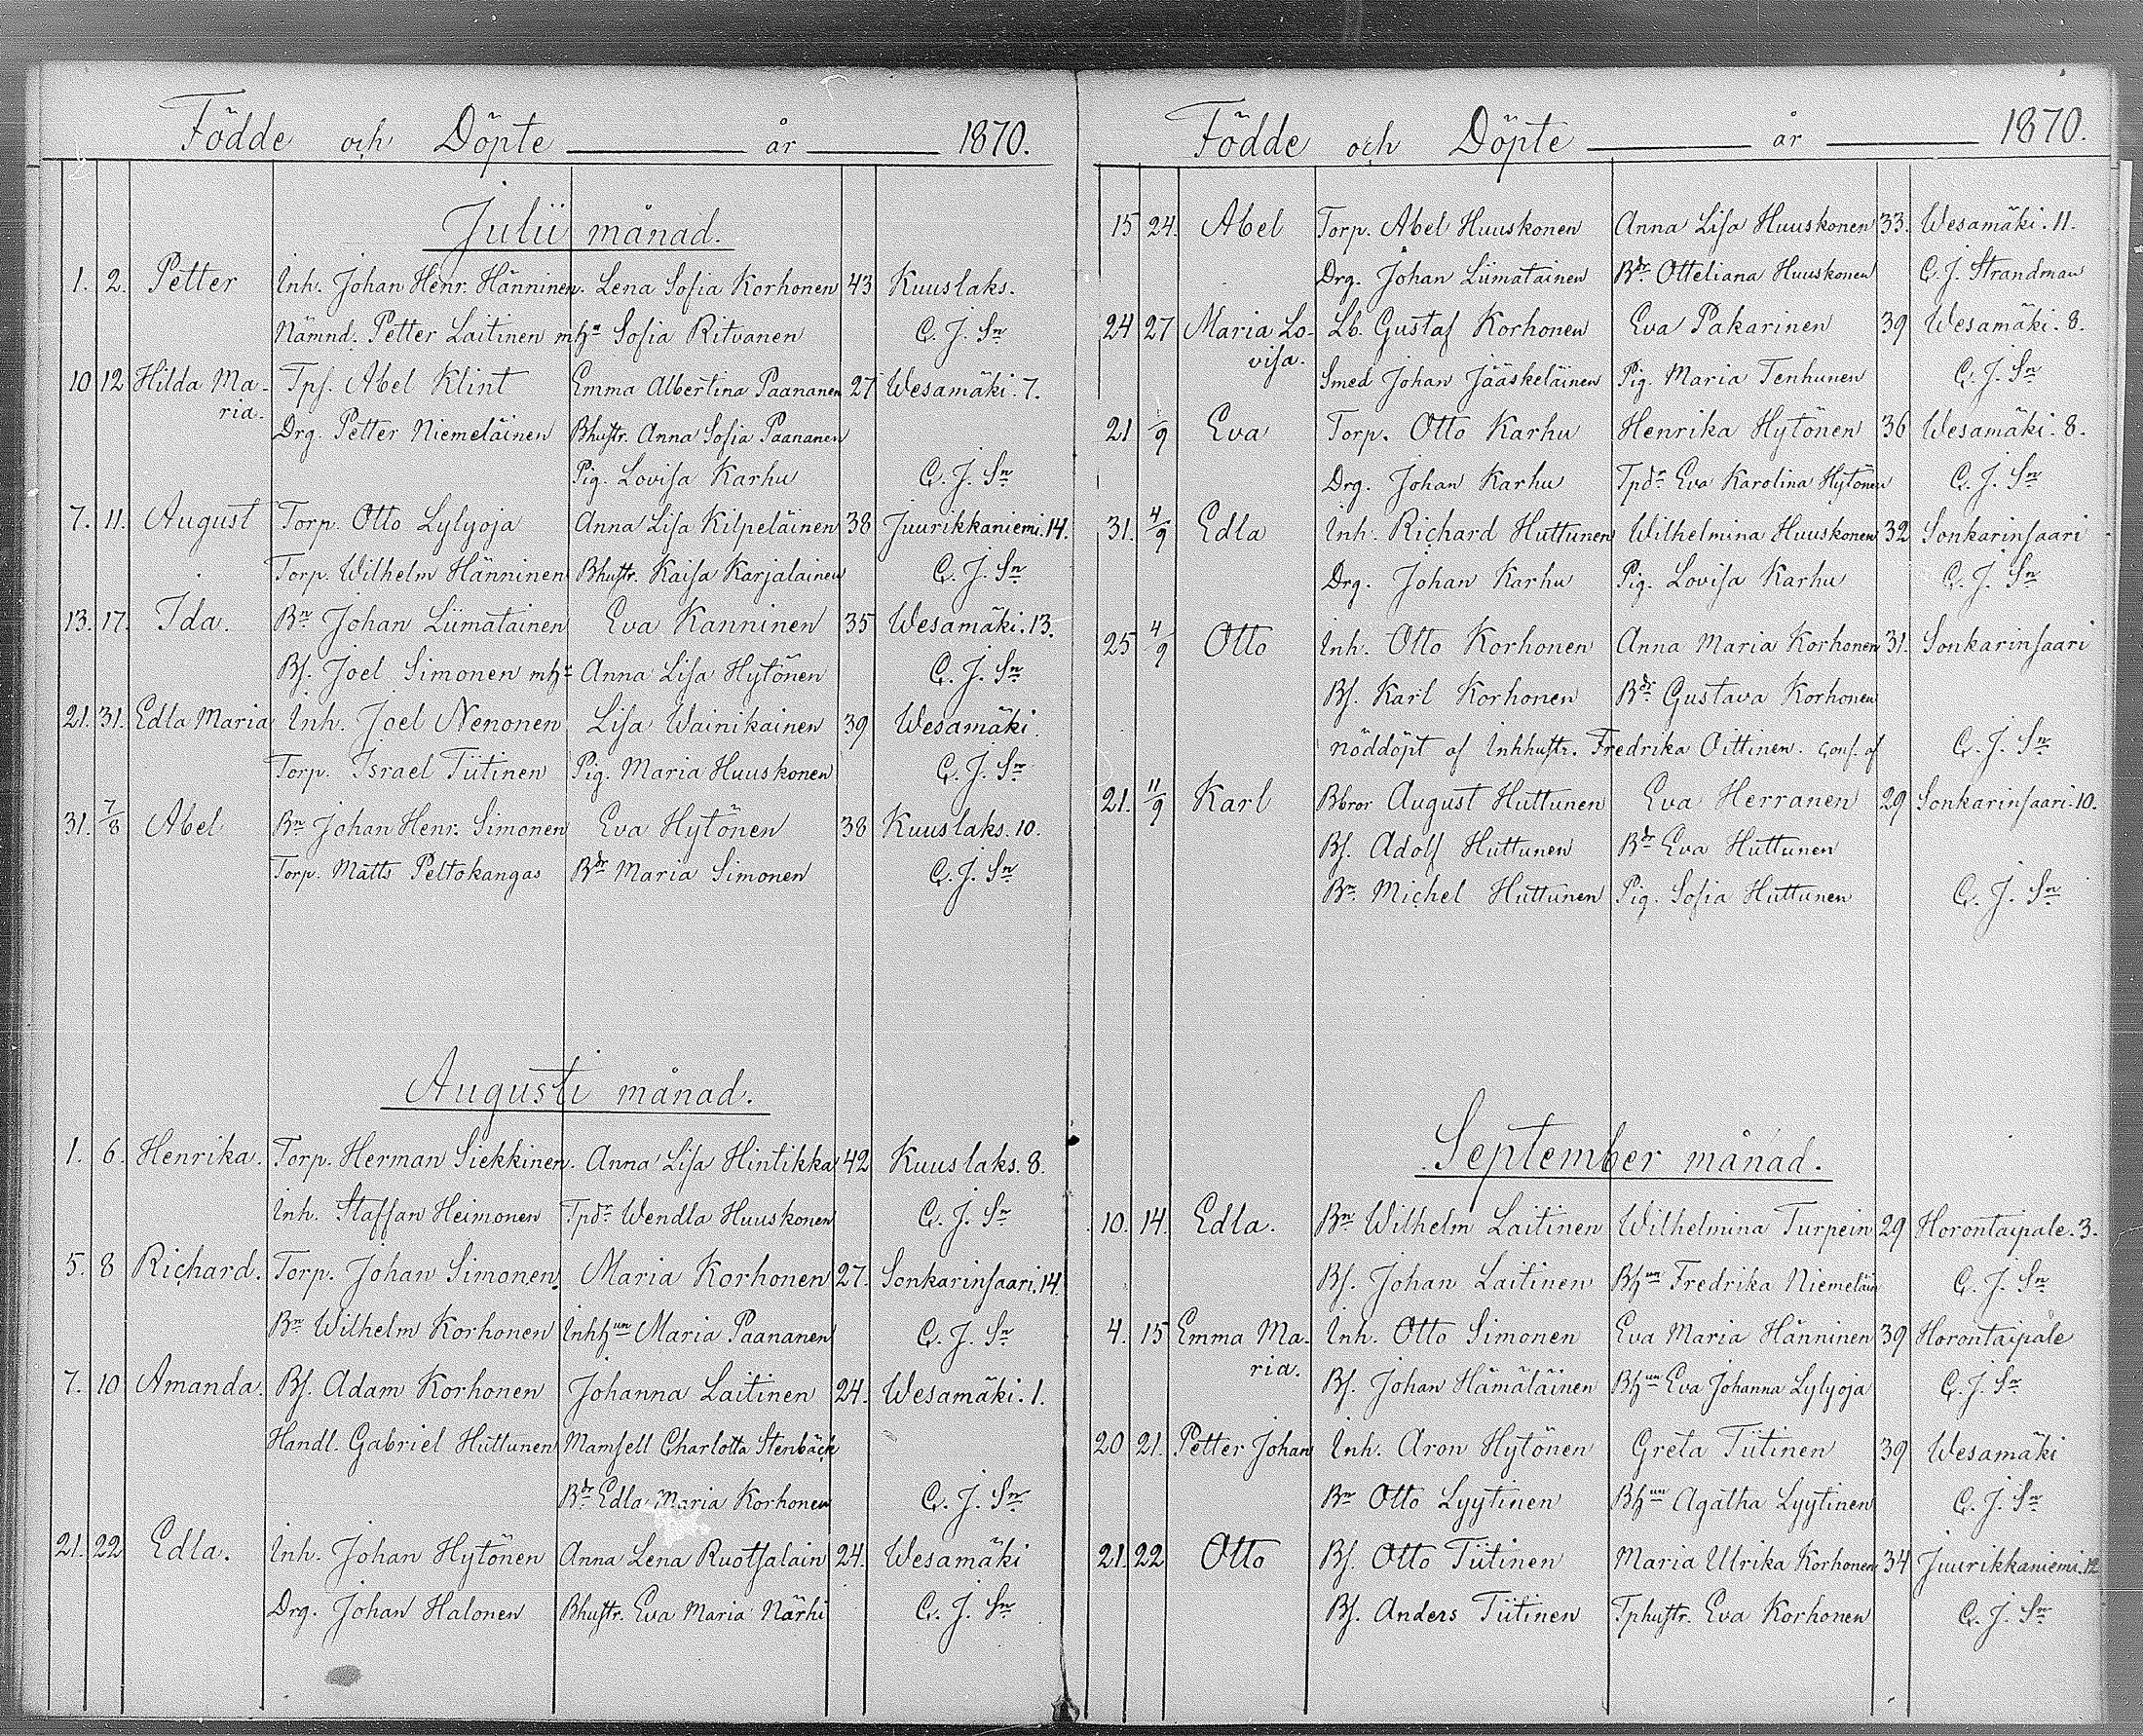 Födde och Döpte år 1870.
Julii månad.
1. 2. Petter Inh. Johan Henr. Hänninen. Lena Sofia Korhonen 43 Kuuslaks.
Nämnd. Petter Laitinen mhu Sofia Ritvanen C. J. Sn
10 12 Hilda Ma- Tps. Abel Klint Emma Albertina Paananen 27 Wesamäki. 7.
ria.
Drg. Petter Niemeläinen Bhustr. Anna Sofia Paananen
Pig. Lovisa Karhu C. J. Sn
7. 11. August Torp. Otto Lylyoja Anna Lisa Kilpeläinen 38 Juurikkaniemi. 14.
Torp. Wilhelm Hänninen Bhustr. Kaisa Karjalainen C. J. Sn
13. 17. Ida. Bn Johan Liimatainen Eva Kanninen 35 Wesamäki. 13.
Bs. Joel Simonen mhu Anna Lisa Hytönen C. J. Sn
21. 31. Edla Maria Inh. Joel Nenonen Lisa Wainikainen 39 Wesamäki.
Torp. Israel Tiitinen Pig. Maria Huuskonen C. J. Sn
31. 7/8 Abel Bn Johan Henr. Simonen Eva Hytönen 38 Kuuslaks. 10.
Torp. Matts Peltokangas Bdr Maria Simonen C. J. Sn
Augusti månad.
1. 6. Henrika. Torp. Herman Siekkinen. Anna Lisa Hintikka 42 Kuuslaks. 8.
Inh. Staffan Heimonen Tpdr Wendla Huuskonen C. J. Sn
5. 8 Richard. Torp. Johan Simonen. Maria Korhonen 27. Sonkarinsaari. 14.
Bn Wilhelm Korhonen Inhhun Maria Paananen C. J. Sn
7. 10 Amanda. Bs. Adam Korhonen Johanna Laitinen 24. Wesamäki. 1.
Handl. Gabriel Huttunen Mamsell Charlotta Stenbäck
Bdr Edla Maria Korhonen C. J. Sn
21. 22 Edla. Inh. Johan Hytönen Anna Lena Ruotsalain 24. Wesamäki
Drg. Johan Halonen Bhustr. Eva Maria Närhi C. J. Sn
Födde och Döpte år 1870.
15 24. Abel Torp. Abel Huuskonen Anna Lisa Huuskonen 33. Wesamäki. 11.
Drg. Johan Liimatainen Bdr Otteliana Huuskonen C. J. Strandman
24 27 Maria Lo- Lb. Gustaf Korhonen Eva Pakarinen 39 Wesamäki. 8.
visa.
Smed Johan Jääskeläinen Pig. Maria Tenhunen C. J. Sn
21 1/9 Eva Torp. Otto Karhu Henrika Hytönen 36 Wesamäki. 8.
Drg. Johan Karhu Tpdr Eva Karolina Hytönen C. J. Sn
31. 4/9 Edla Inh. Richard Huttunen Wilhelmina Huuskonen 32 Sonkarinsaari
Drg. Johan Karhu Pig. Lovisa Karhu C. J. Sn
25 4/9 Otto Inh. Otto Korhonen Anna Maria Korhonen 31. Sonkarinsaari
Bs. Karl Korhonen Bdr Gustava Korhonen
nöddöpt af Inhhustr. Fredrika Oittinen. conf. af C. J. Sn
21. 11/9 Karl Bbror August Huttunen Eva Herranen 29 Sonkarinsaari. 10.
Bs. Adolf Huttunen Bdr Eva Huttunen
Bn Michel Huttunen Pig. Sofia Huttunen C. J. Sn
September månad.
10. 14. Edla. Bn Wilhelm Laitinen Wilhelmina Turpein 29 Horontaipale. 3.
Bs. Johan Laitinen Bhun Fredrika Niemeläin C. J. Sn
4. 15 Emma Ma- Inh. Otto Simonen Eva Maria Hänninen 39 Horontaipale
ria.
Bs. Johan Hämäläinen Bhun Eva Johanna Lylyoja C. J. Sn
20 21. Petter Johan Inh. Aron Hytönen Greta Tiitinen 39 Wesamäki
Bn Otto Lyytinen Bhun Agatha Lyytinen C. J. Sn
21. 22 Otto Bs. Otto Tiitinen Maria Ulrika Korhonen 34 Juurikkaniemi. 12
Bs. Anders Tiitinen Tphustr. Eva Korhonen C. J. Sn